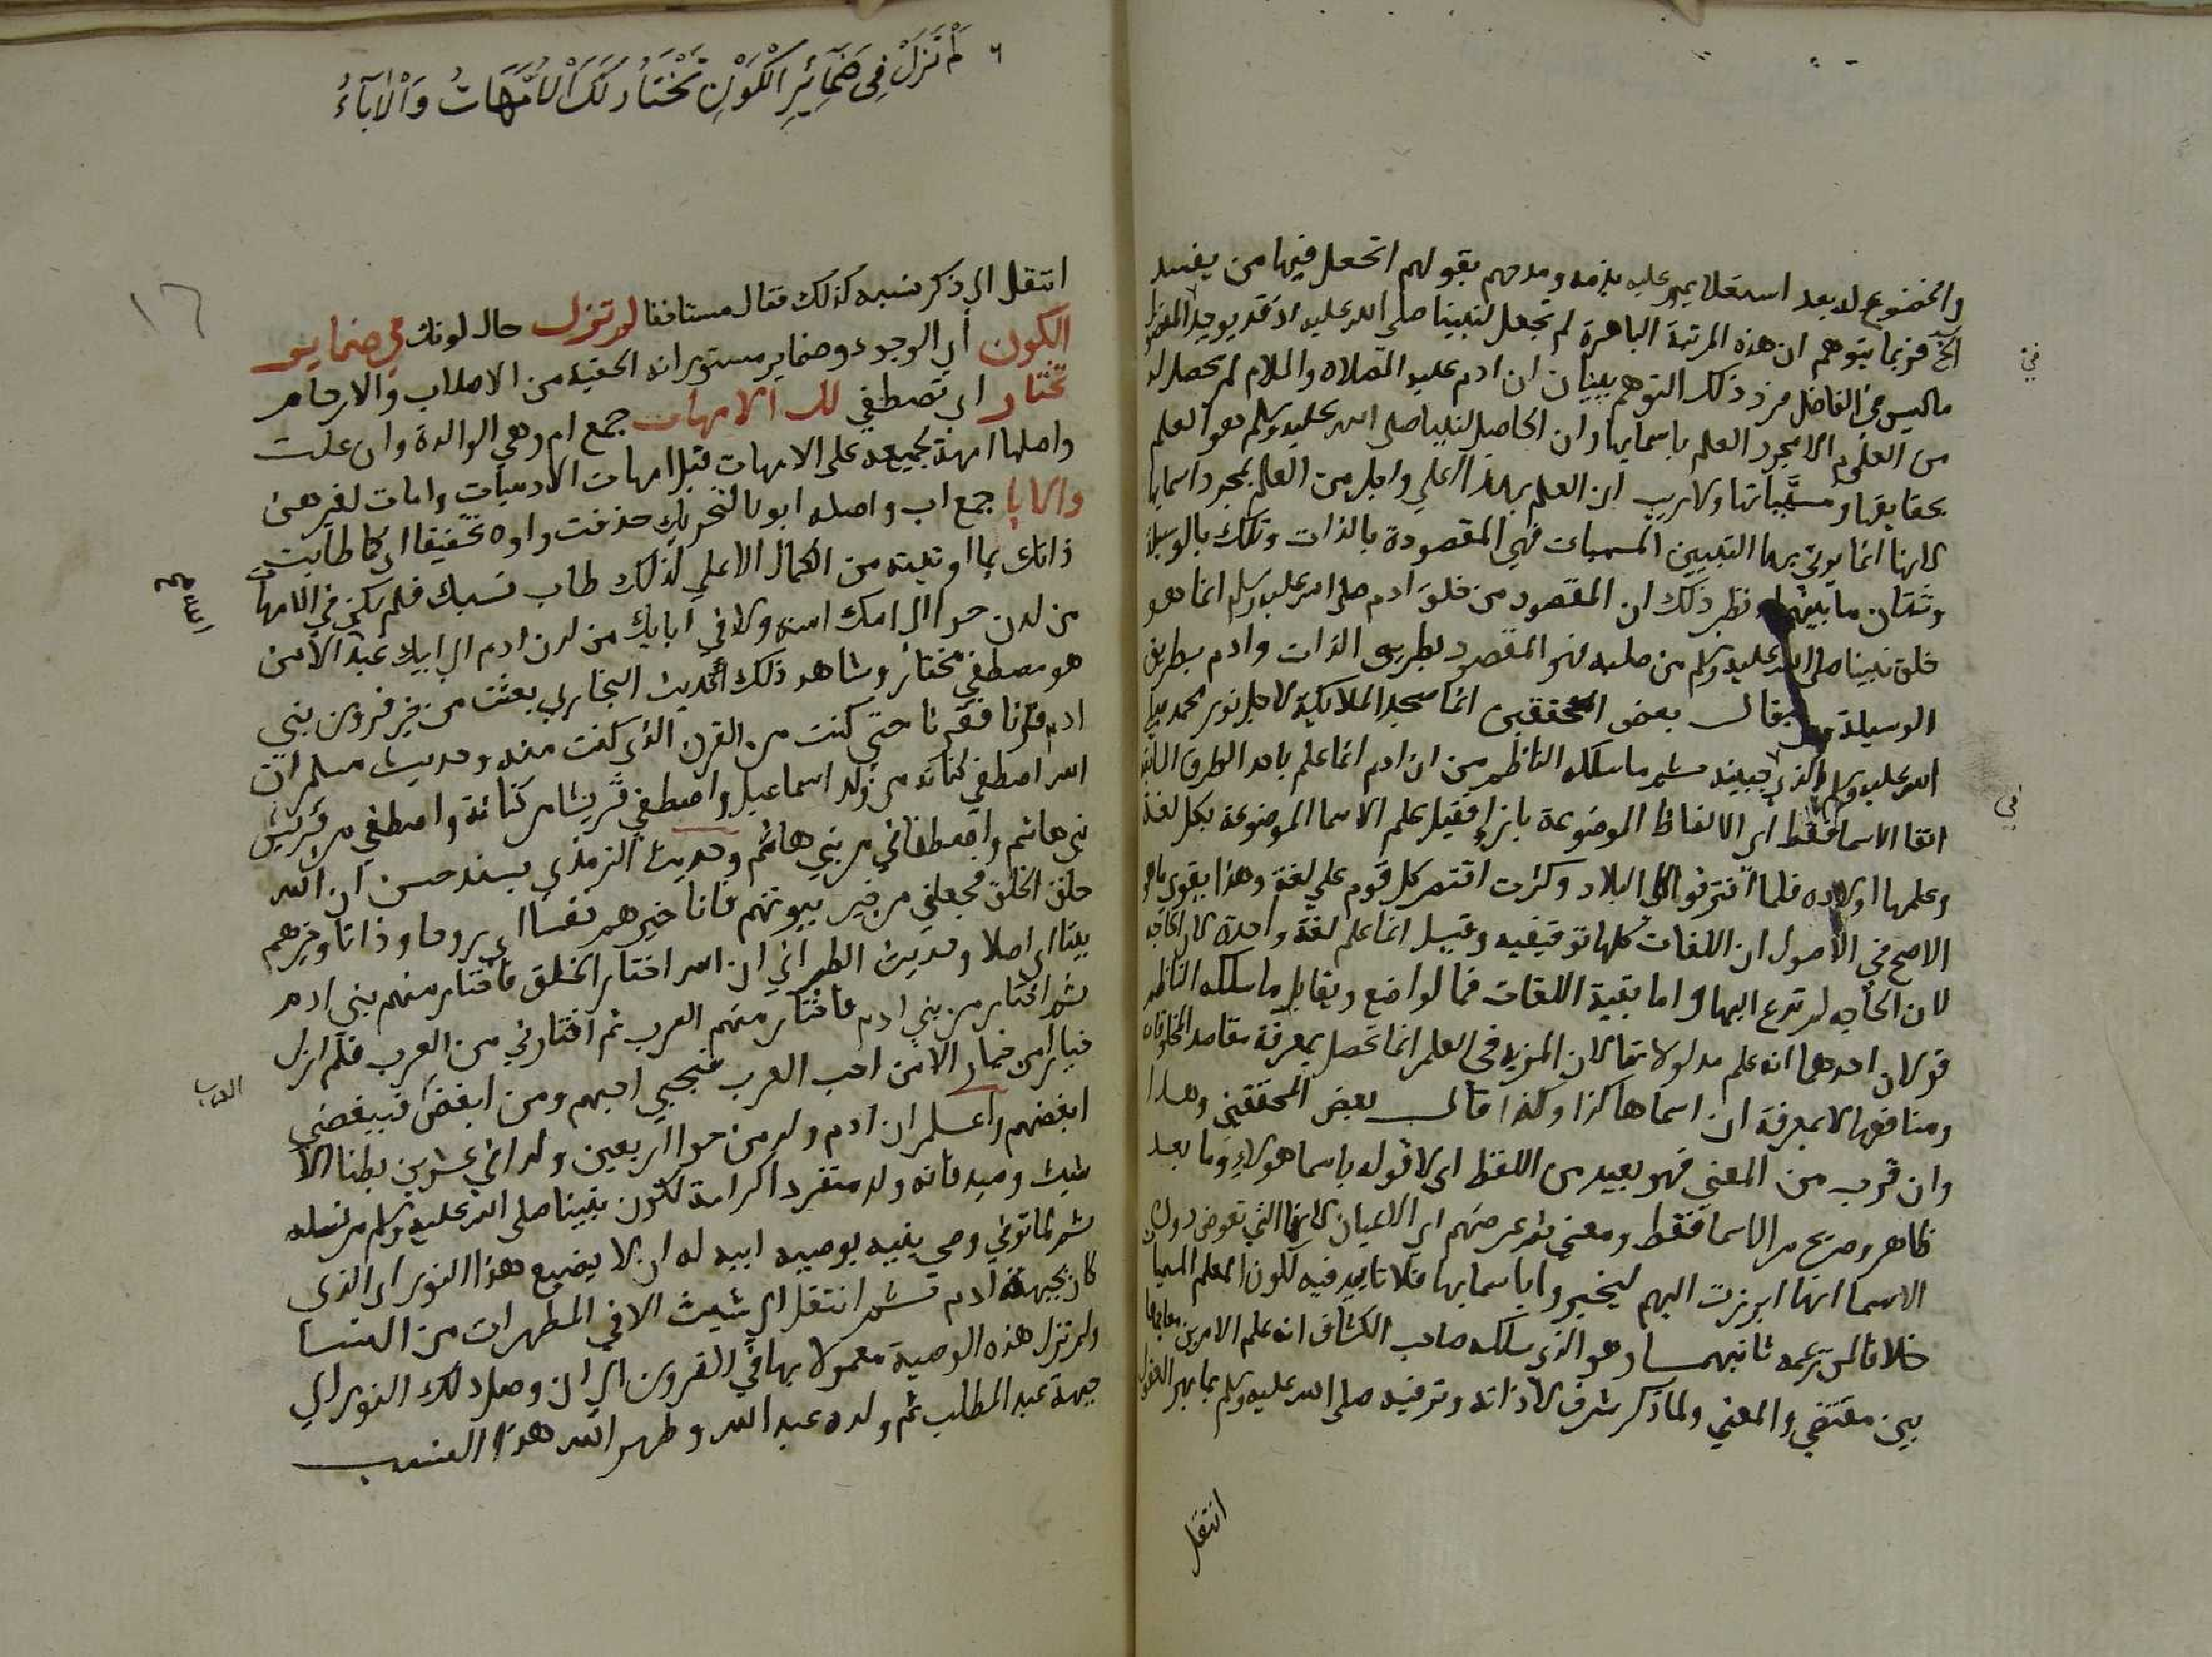 والخضوع له بعد استعلايهم عليه بذمه ومدحهم بقولهم اتجعل فيها من يفسد
الخ فربما يتوهم ان هذه المرتبة الباهرة لم تجعل لنبينا صلي الله عليه اذ قد يوجد المفضول
ما ليس في الفاضل فرد ذلك التوهم ببيان ان ادم عليه الصلاه والسلام لم يحصل له
من العلوم الا مجرد العلم باسمايها وان الحاصل لنبينا صلي الله عليه وسلم هو العلم
بحقايقها ومسمياتها ولا ريب ان العلم بهذا اعلي واجل من العلم بمجرد اسمايها
لانها انما يوتي بها لتبيين المسميات فهي المقصودة بالذات وتلك بالوسيلة
وشتان ما بينهما ونظير ذلك ان المقصود من خلق ادم صلي الله عليه وسلم انما هو
خلق نبينا صلي الله عليه وسلم من صلبه فهو المقصود بطريق الذات وادم بطريق
الوسيلة يقال بعض المحققين انما سجد الملايكة لاجل نور محمد صلي
الله عليه وسلم الذي في جبينه ثم ما سلكه الناظم من ان ادم انما علم باحد الطرق
الاسما فقط اي الالفاظ الموضوعة بازاء فقيل علم الاسما الموضوعة بكل لغة
وعلمها اولاده فلما افترقوا في البلاد وكثرت اقتصر كل قوم علي لغة وهذا يقوي ما هو
الاصح في الاصول ان اللغات كلها توقيفيه وقيل انما علم لغة واحدة
لان الحاجه لم تدع اليها واما بقية اللغات فبالواضع ويقابل ما سلكه الناظم
قولان احدهما انه علم مدلولاتها لان المزيه في العلم انما تحصل بمعرفة مقاصد المخلوقات
ومنافعها لا بمعرفة ان اسماها كذا وكذا قال بعض المحققين وهذا
وان قرب من المعني فهو بعيد من اللفظ اي لا قوله باسما هولاء وما بعد
ظاهر وصريح في الاسما فقط ومعني ثم عرضهم اي الاعيان لانها التي تعرض دون
الاسما انها ابرزت اليهم ليخبروا باسمايها فلا تاييد فيه لكون المعلم المسميات
خلافا لمن زعمه ثانيهما وهو الذي سلكه صاحب الكشاف انه علم الامرين
بين مقتضي والمعني ولما ذكر شرف ذاته وترقيه صلي الله عليه وسلم بما بهر العقول
انتقل
في
في
لَمْ تَزَلْ فِى ضَمَآئِرِ الْكَوْنِ تُخْتَارُ لَكَ الْأُمَّهَاتُ وَالْآبَآءُ
١٦
انتقل الي ذكر نسبه كذلك فقال مستانفا لم تزل حال كونك في ضماير
الكون اي الوجود وضماير مستوراته الخفيه من الاصلاب والارحام
تختار اي تصطفي لك الامهات جمع ام وهي الوالدة وان علت
واصلها امهة لجمعه علي الامهات قيل امهات الادميات وامات لغيرهن
والابا جمع اب واصله ابو بالتحريك حذفت واوه تخفيفا اي كما طابت
ذاتك بما اوتيته من الكمال الاعلي كذلك طاب نسبك فلم يكن في الامهات
من لدن حوا الي امك امنه ولا في ابايك من لدن ادم الي ابيك عبد الله الا من
هو مصطفي مختار وشاهد ذلك الحديث البخاري بعثت من خير قرون بني
ادم قرنا فقرنا حتي كنت من القرن الذي كنت منه وحديث مسلم ان
الله اصطفي كنانه من ولد اسماعيل واصطفي قريشا من كنانة واصطفي من قريش
بني هاشم واصطفاني من بني هاشم وحديث الترمذي بسند حسن ان الله
خلق الخلق فجعلني من خير بيوتهم فانا خيرهم نفسا اي روحا وذاتا وخيرهم
بيتا اي اصلا وحديث الطبراني ان الله اختار الخلق فاختار منهم بني ادم
ثم اختار من بني ادم فاختار منهم العرب ثم اختارني من العرب فلم ازل
خيارا من خيار الا من احب العرب فبحبي احبهم ومن ابغض فببغضي
العرب
ابغضهم واعلم ان ادم ولد من حوا اربعين ولدا في عشرين بطنا الا
شيث وصيه فانه ولد منفردا كرامة لكون نبينا صلي الله عليه وسلم من نسله
ثم لما توفي وصي بنيه بوصيه ابيه له ان لا يضيع هذا النور اي الذي
كان بجبهة ادم ثم انتقل الي شيث الا في المطهرات من النسا
ولم تزل هذه الوصية معمولا بها في القرون الي ان وصل ذلك النور الي
جبهة عبد المطلب ثم ولده عبد الله وطهر الله هذا النسب